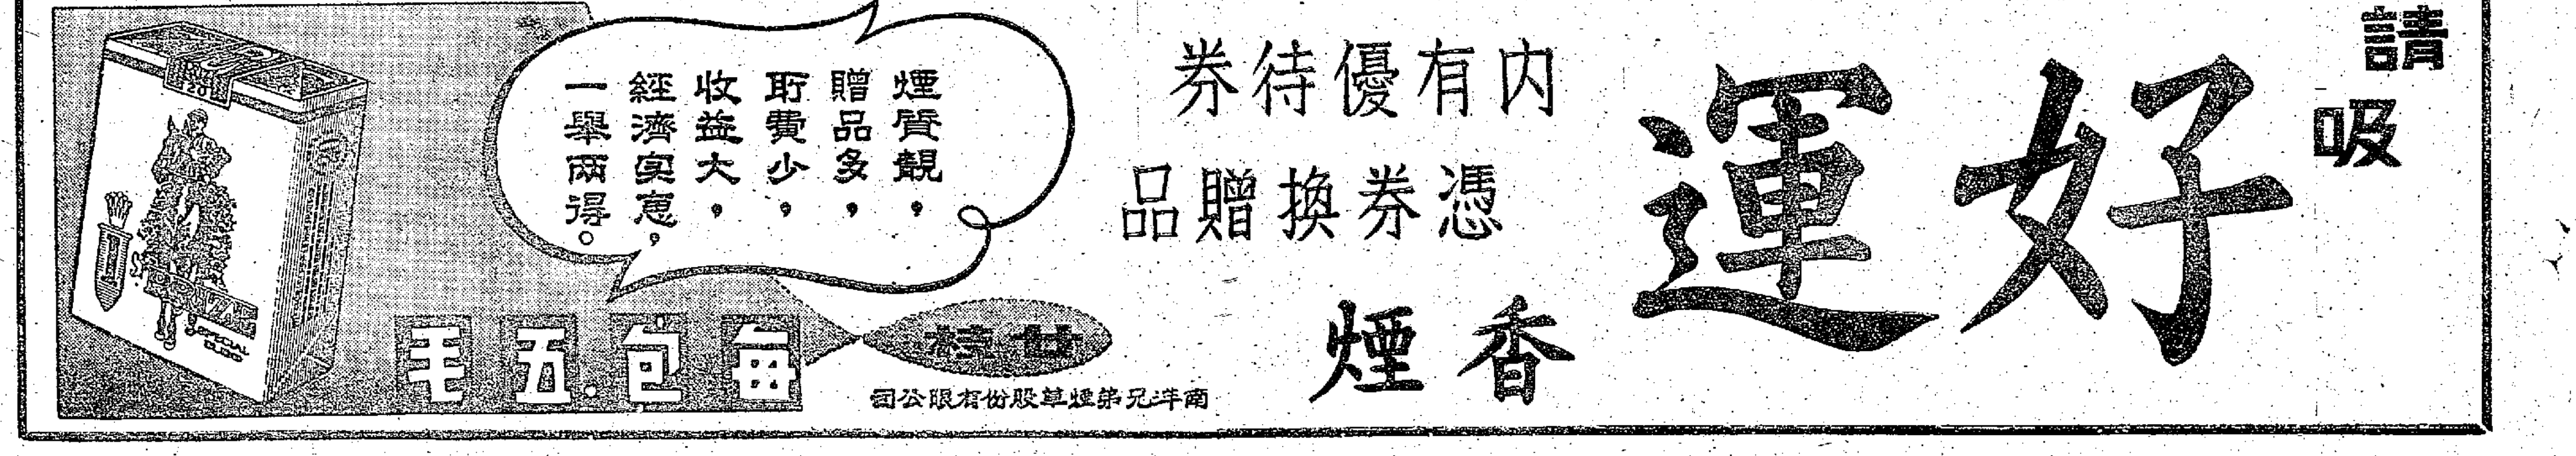 請吸
好運
香煙
內有優待券
憑券換贈品
煙質靚，
贈品多，
取費少，
收益大，
經濟實惠，
一舉兩得。
廿枝
每包五毛
南洋兄弟煙草股份有限公司
20
SPECIAL